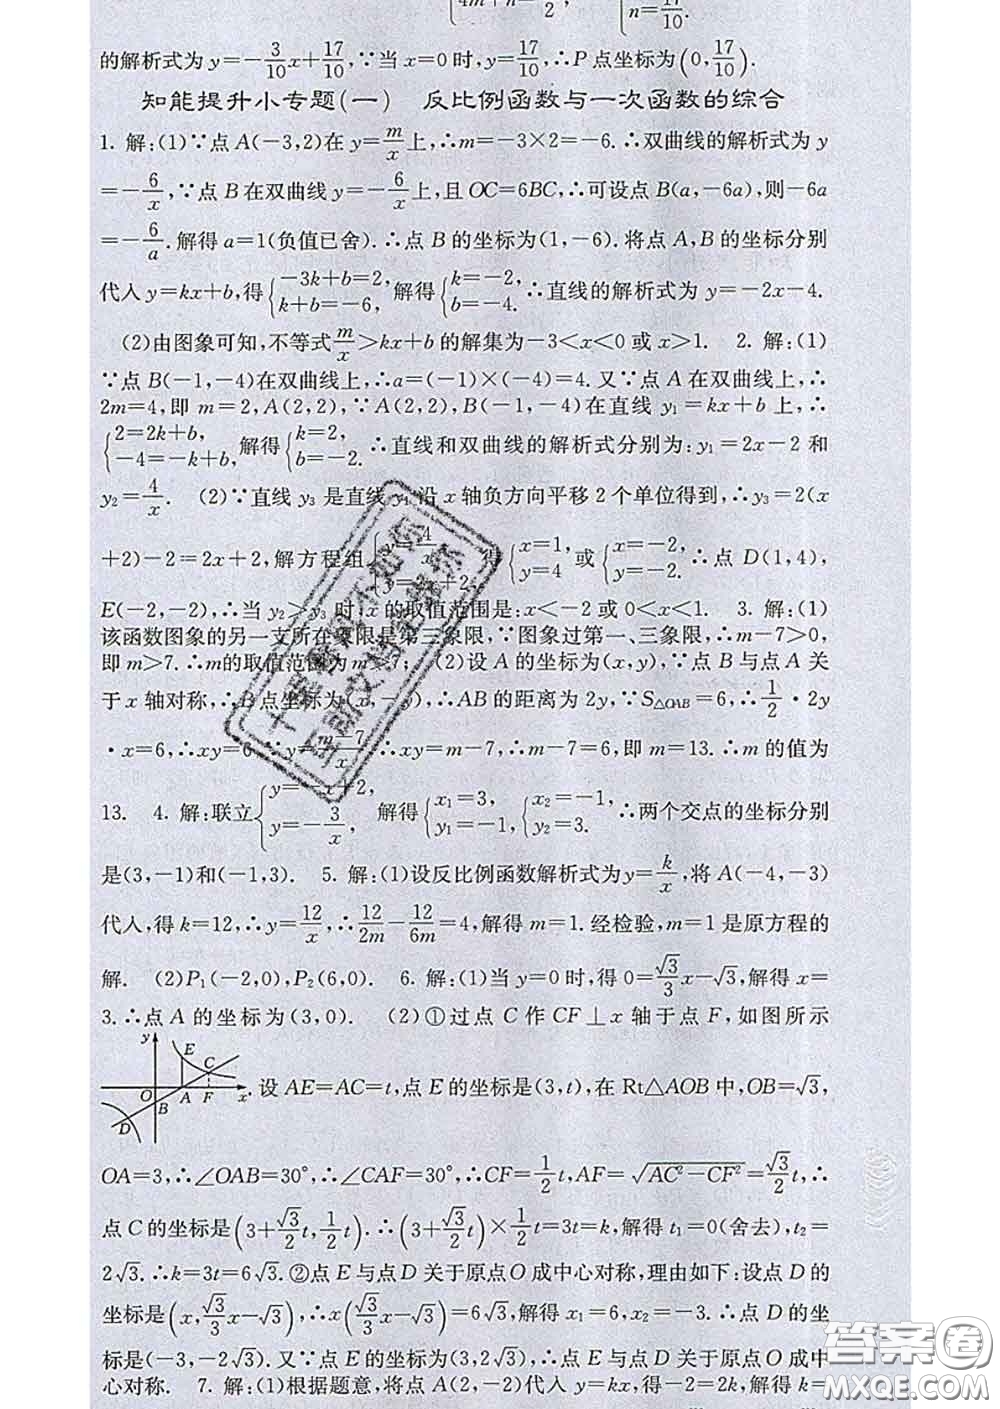 4m+n=-/2, n=17/10.
的解析式为 y=-3/10x+17/10,∵当 x=0 时,y=17/10,∴P 点坐标为(0,17/10).
知能提升小专题(一) 反比例函数与一次函数的综合
1. 解:(1)∵点 A(-3,2)在 y=m/x上,∴m=-3×2=-6.∴双曲线的解析式为 y
=-6/x,∵点 B 在双曲线 y=-6/x上,且 OC=6BC,∴可设点 B(a,-6a),则-6a
=-6/a.解得 a=1(负值已舍).∴点 B 的坐标为(1,-6).将点 A,B 的坐标分别
代入 y=kx+b,得{-3k+b=2, k+b=-6, 解得{k=-2, b=-4. ∴直线的解析式为 y=-2x-4.
(2)由图象可知,不等式m/x>kx+b 的解集为-3<x<0 或 x>1. 2. 解:(1)
∵点 B(-1,-4)在双曲线上,∴a=(-1)×(-4)=4.又∵点 A 在双曲线上,∴
2m=4,即 m=2,A(2,2),∵A(2,2),B(-1,-4)在直线 y₁=kx+b 上,∴
{2=2k+b, -4=-k+b, 解得{k=2, b=-2. ∴直线和双曲线的解析式分别为:y₁=2x-2 和
y₂=4/x. (2)∵直线 y₃ 是直线 y₁ 沿 x 轴负方向平移 2 个单位得到,∴y₃=2(x
+2)-2=2x+2,解方程组{y=4/x, y=2x+2, 得{x=1, y=4 或{x=-2, y=-2. ∴点 D(1,4),
E(-2,-2),∴当 y₂>y₃ 时,x 的取值范围是:x<-2 或 0<x<1. 3. 解:(1)
该函数图象的另一支所在象限是第三象限,∵图象过第一、三象限,∴m-7>0,
即 m>7.∴m的取值范围为 m>7; (2)设 A 的坐标为(x,y),∵点 B 与点 A 关
于 x 轴对称,∴B 点坐标为(x,-y),∴AB 的距离为 2y,∵S△OAB=6,∴1/2·2y
·x=6,∴xy=6.∵y=m-7/x,∴xy=m-7,∴m-7=6,即 m=13.∴m 的值为
13. 4. 解:联立{y=-x+2, y=-3/x, 解得{x₁=3, y₁=-1, {x₂=-1, y₂=3. ∴两个交点的坐标分别
是(3,-1)和(-1,3). 5. 解:(1)设反比例函数解析式为y=k/x,将 A(-4,-3)
代入,得 k=12,∴y=12/x,∴12/2m-12/6m=4,解得 m=1.经检验,m=1 是原方程的
解. (2)P₁(-2,0),P₂(6,0). 6. 解:(1)当 y=0 时,得 0=√3/3x-√3,解得 x=
3.∴点 A 的坐标为(3,0). (2)①过点 C 作 CF⊥x 轴于点 F,如图所示
y E C O B A F x D
.设 AE=AC=t,点 E 的坐标是(3,t),在 Rt△AOB 中,OB=√3,
OA=3,∴∠OAB=30°,∴∠CAF=30°,∴CF=1/2t,AF=√AC²-CF²=√3/2t,∴
点 C 的坐标是(3+√3/2t,1/2t).∴(3+√3/2t)×1/2t=3t=k,解得 t₁=0(舍去),t₂=
2√3.∴k=3t=6√3.②点 E 与点 D 关于原点 O 成中心对称,理由如下:设点 D 的
坐标是(x,√3/3x-√3),∴x(√3/3x-√3)=6√3,解得 x₁=6,x₂=-3.∴点 D 的坐
标是(-3,-2√3).又∵点 E 的坐标为(3,2√3),∴点 E 与点 D 关于原点 O 成中
心对称. 7. 解:(1)根据题意,将点 A(2,-2)代入 y=kx,得-2=2k,解得 k=
答案圈
MXQE.COM